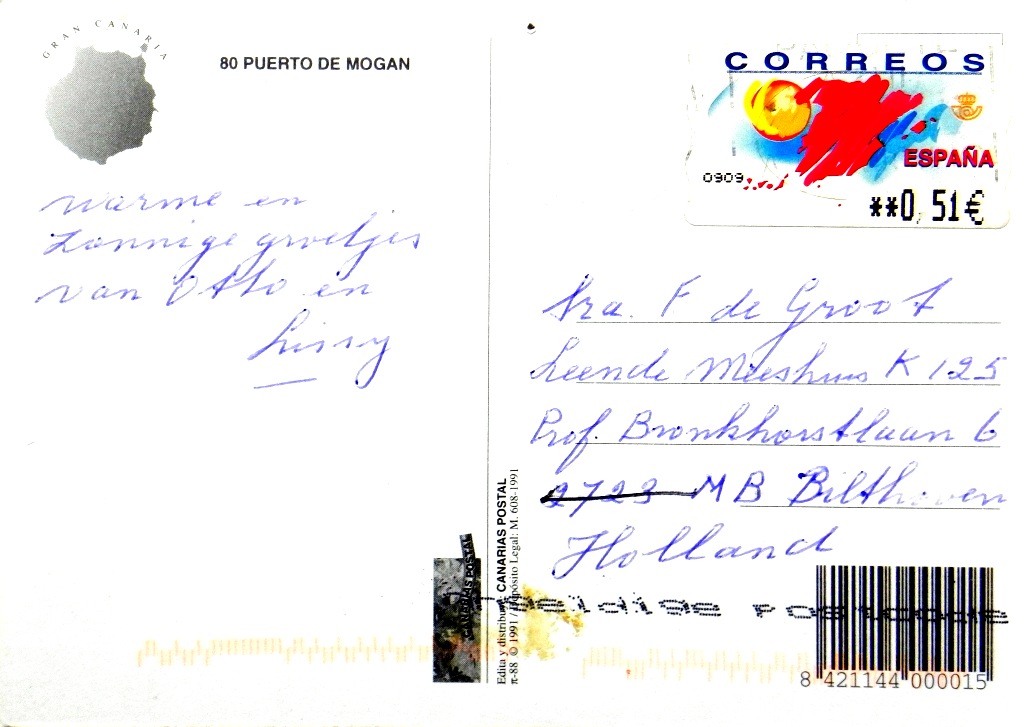 GRAN CANARIA
80 PUERTO DE MOGAN
CORREOS
ESPAÑA
0909
**0,51€
warme en
zonnige groetjes
van Otto en
Lissy
Sra. F de Groot
Leende Meeshuis K 125
Prof. Bronkhorstlaan 6
2723 MB Bilthoven
Holland
CANARIAS POSTAL
Edita y distribuye: CANARIAS POSTAL
π-88 © 1991 / Depósito Legal: M. 608-1991
8 421144 000015